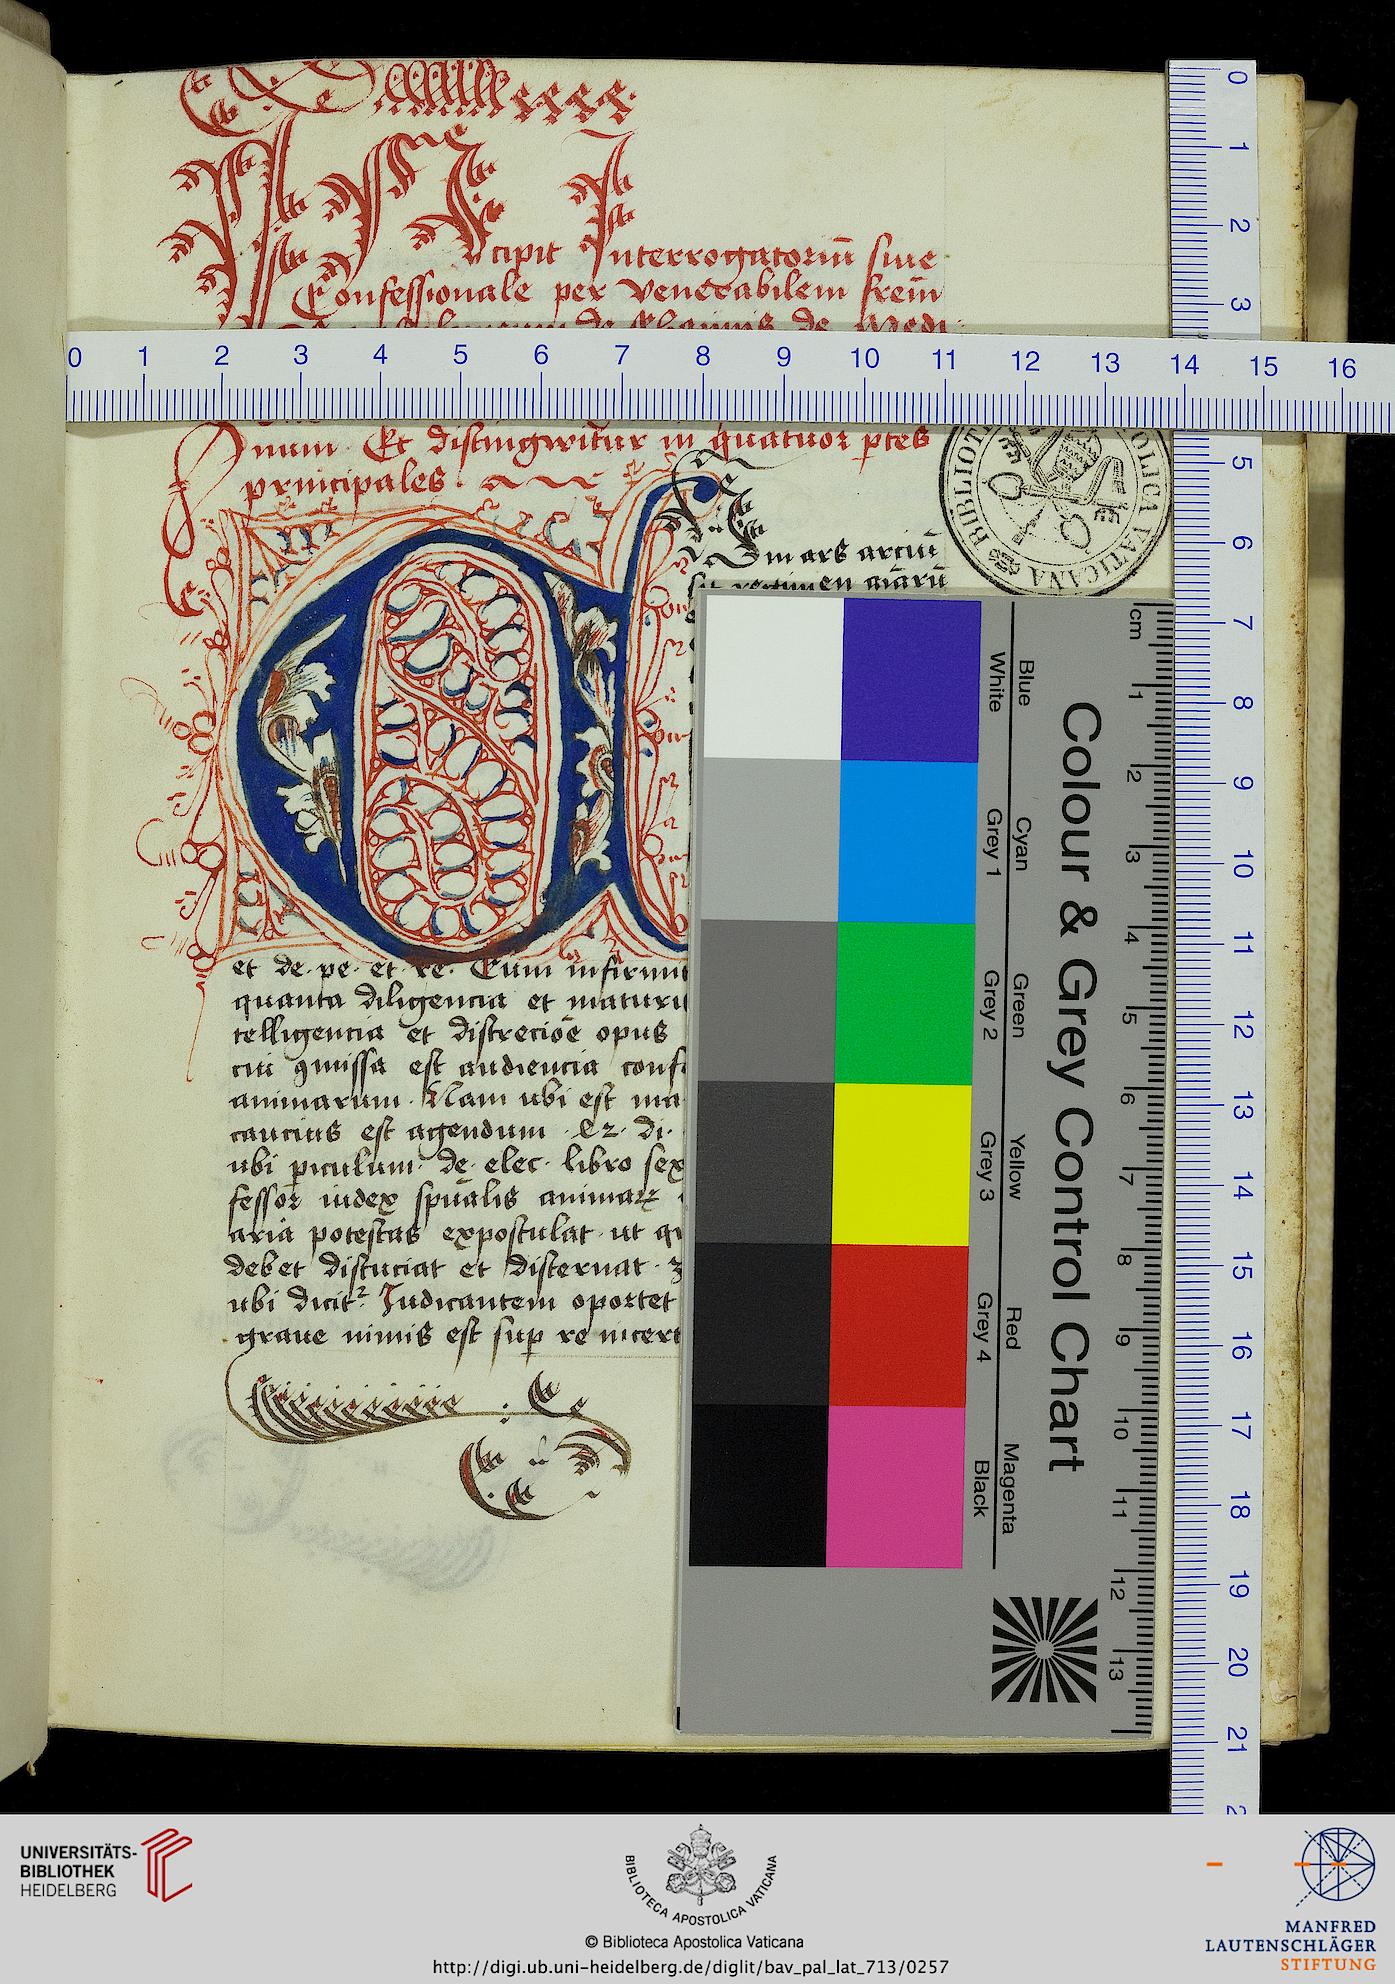 Incipit Interrogatoriū siue
Confessionale per venerabilem frem̄
de Medi
num Et distingwitur in quatuor ptes
principales
um ars arciū
sit regimen aīarū
et de pe et re Cum infirmit
quanta diligencia et maturit
telligencia et discrecioē opus
cui ꝯmissa est audiencia conf
animarum Nam ubi est ma
caucius est agendum
ubi piculum de elec libro sex
fessor iudex spūalis animarꝝ
aria potestas expostulat ut qu
debet discuciat et discernat
ubi dicit Iudicantem oportet
graue nimis est sup re incert
BIBLIOTECA APOSTOLICA VATICANA
0 1 2 3 4 5 6 7 8 9 10 11 12 13 14 15 16
0 1 2 3 5 6 7 8 9 10 11 12 13 14 15 16 17 18 19 20 21
Colour & Grey Control Chart
Blue Cyan Green Yellow Red Magenta
White Grey 1 Grey 2 Grey 3 Grey 4 Black
cm 1 2 3 4 5 6 7 8 9 10 11 12 13
UNIVERSITÄTS-
BIBLIOTHEK
HEIDELBERG
BIBLIOTECA APOSTOLICA VATICANA
© Biblioteca Apostolica Vaticana
http://digi.ub.uni-heidelberg.de/diglit/bav_pal_lat_713/0257
MANFRED
LAUTENSCHLÄGER
STIFTUNG